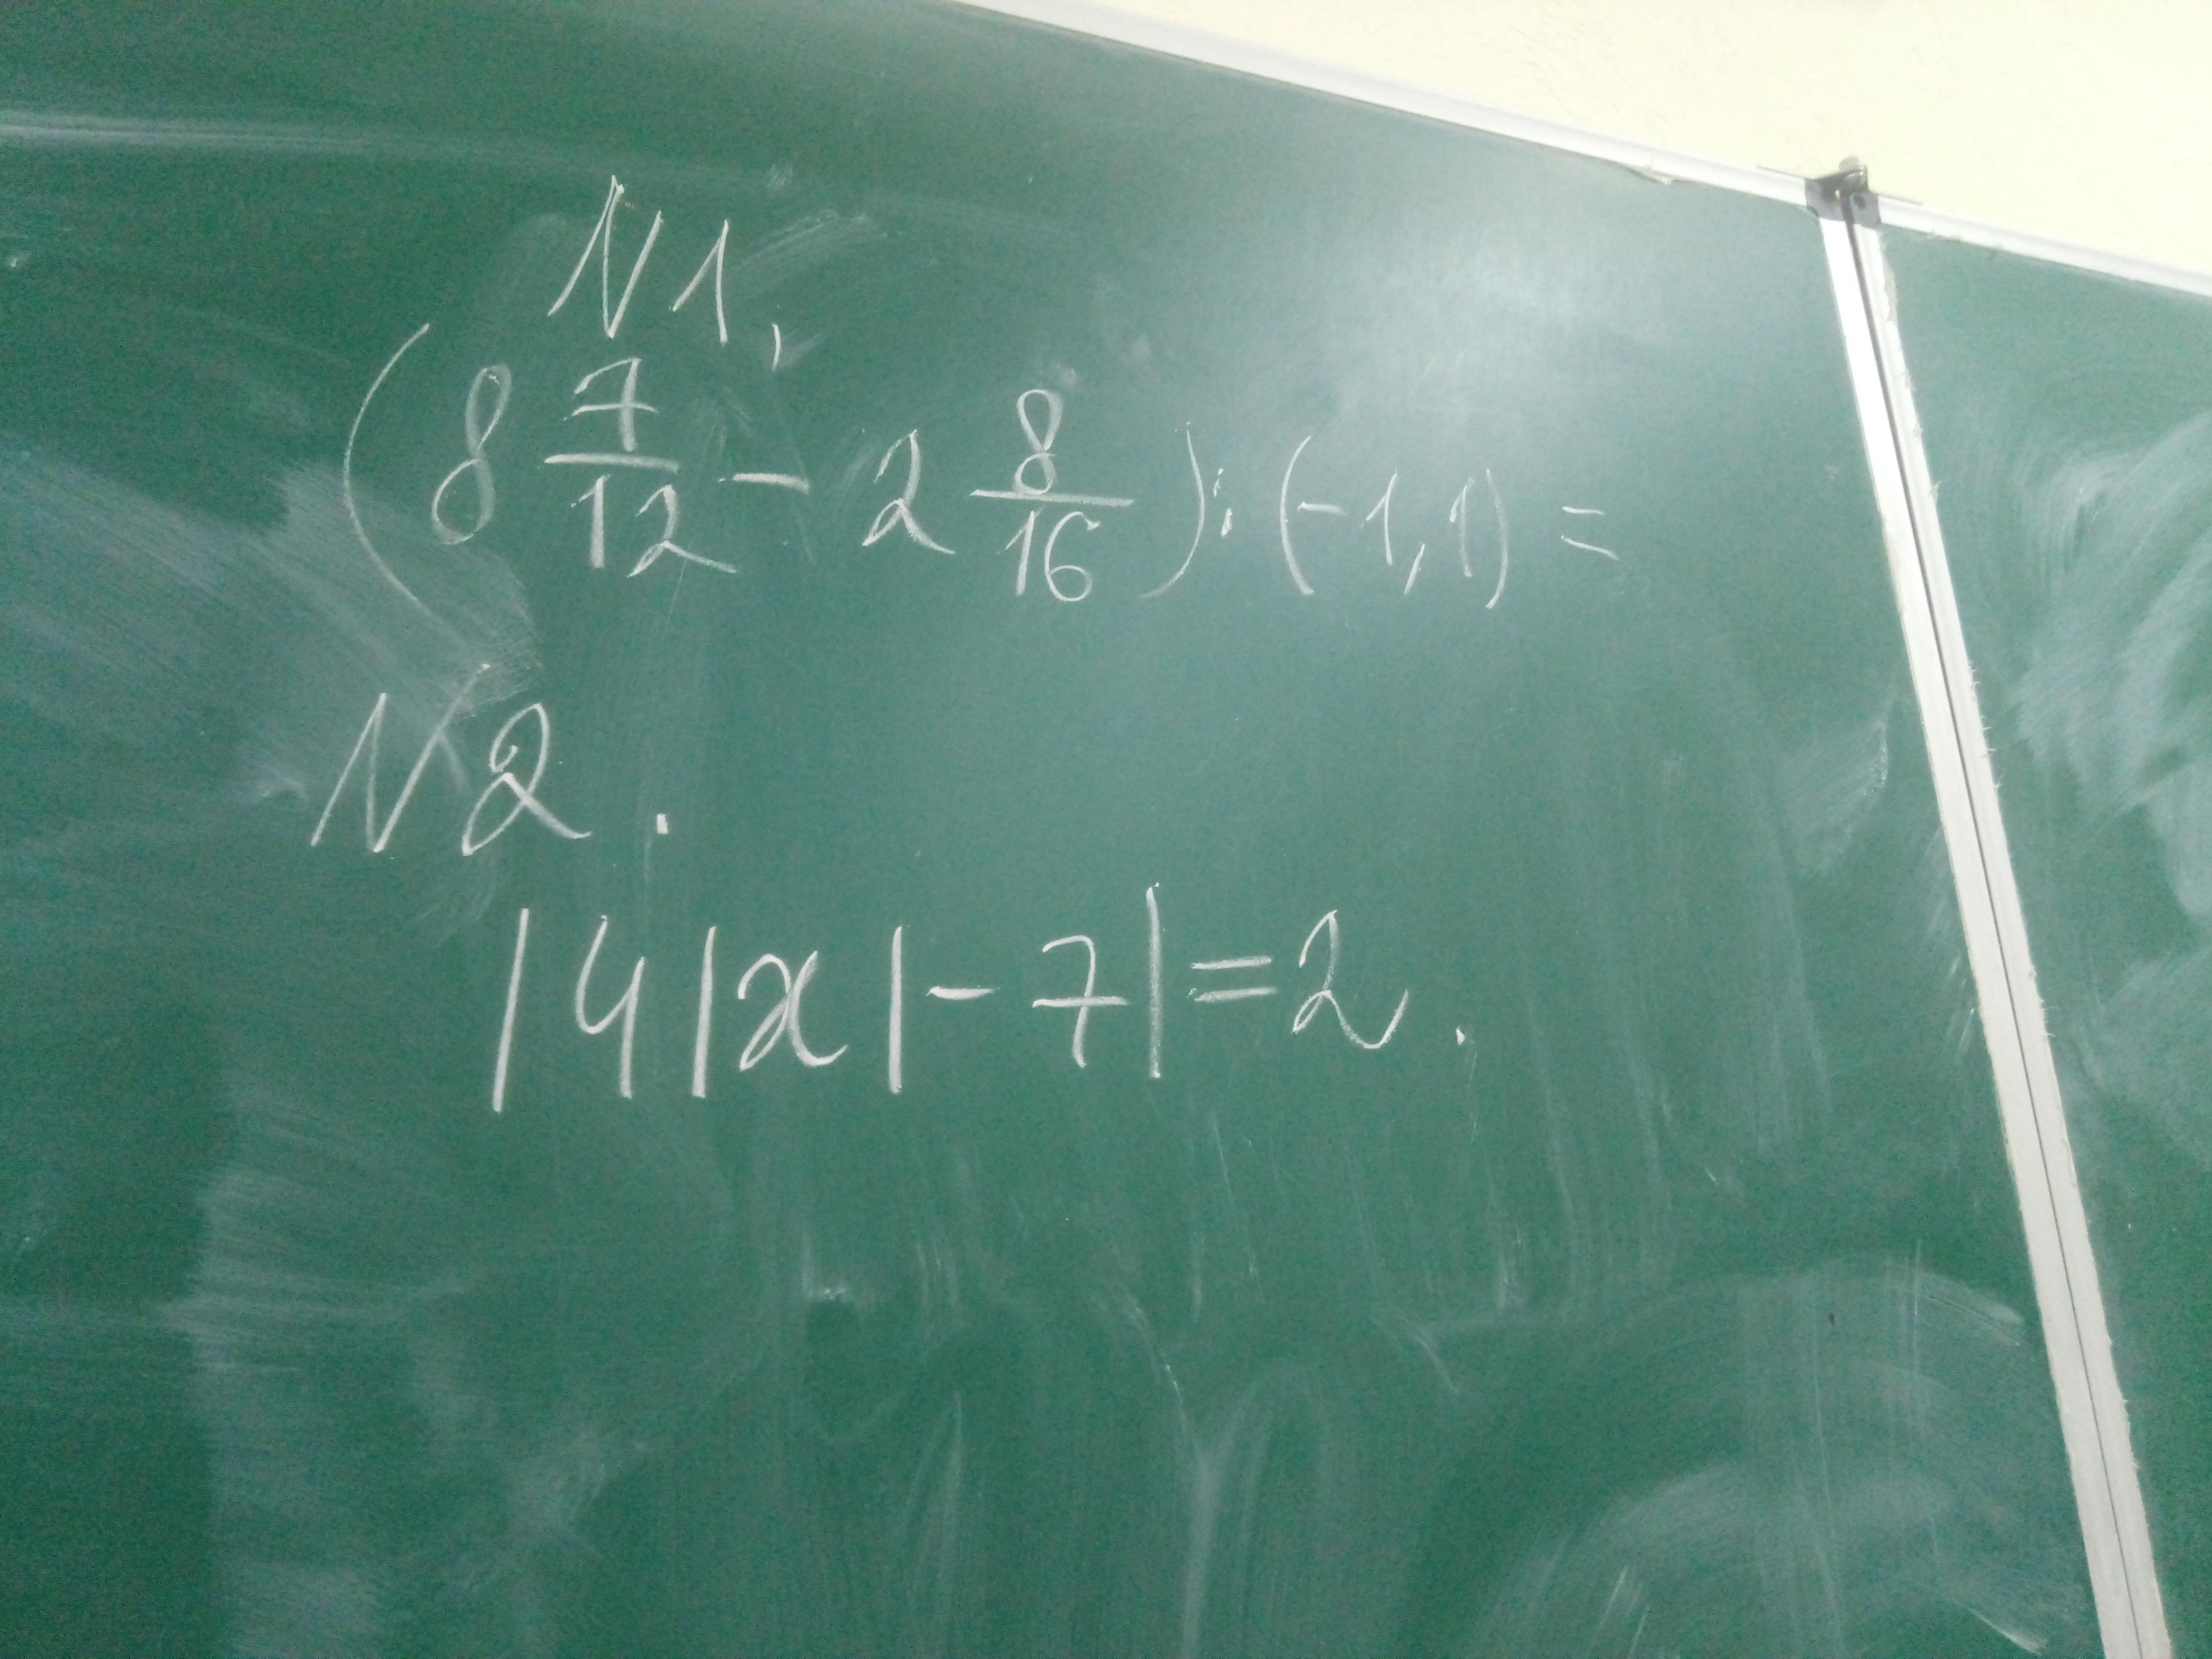 N1.
(8 7/12 - 2 8/16) : (-1,1) =
N2.
|4|x|-7|=2.